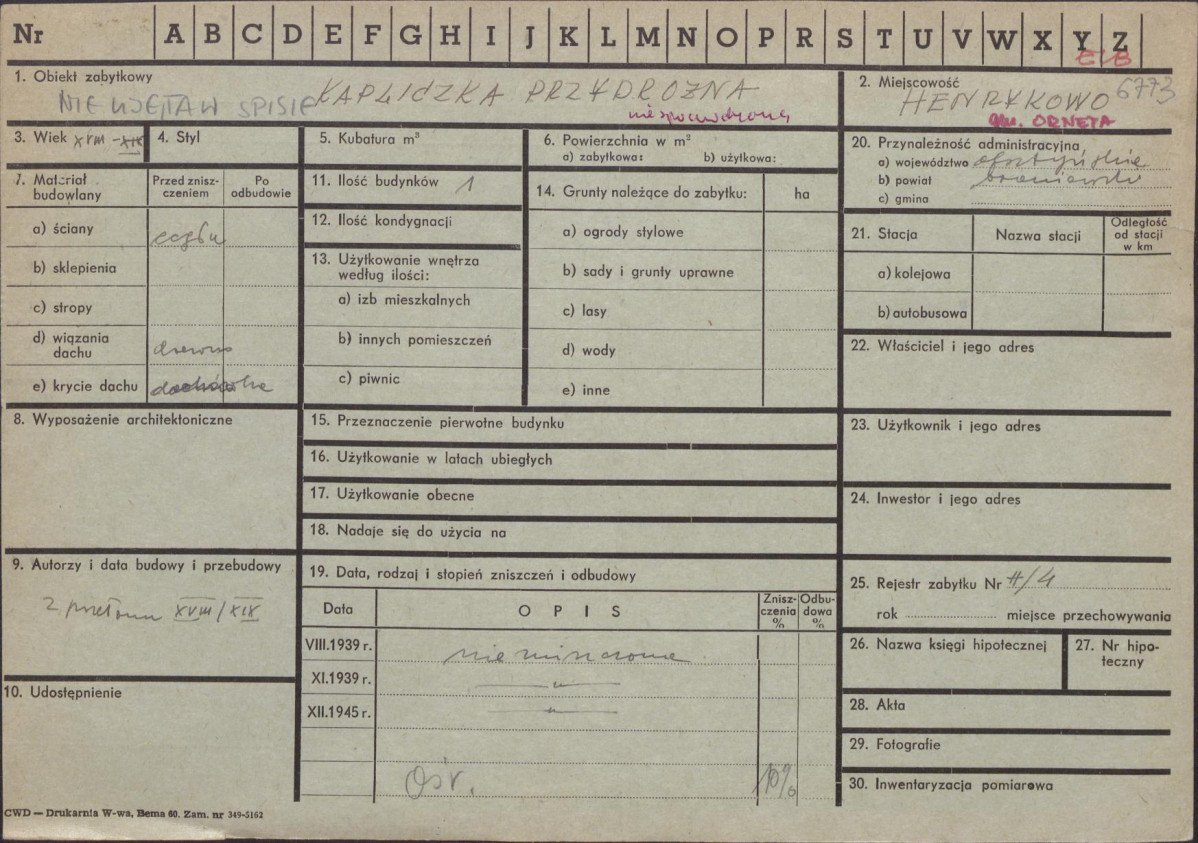 Nr A B C D E F G H I J K L M N O P R S T U V W X Y Z
ELB
1. Obiekt zabytkowy
KAPLICZKA PRZYDROŻNA
NIE UJĘTA W SPISIE
niesprawdzone
2. Miejscowość
6773
HENRYKOWO
gm. ORNETA
3. Wiek XVIII-XIX
4. Styl
5. Kubatura m³
6. Powierzchnia w m²
a) zabytkowa: b) użytkowa:
7. Materiał budowlany
Przed znisz-
czeniem
Po
odbudowie
a) ściany cegła
b) sklepienia
c) stropy
d) wiązania
dachu drewno
e) krycie dachu dachówka
8. Wyposażenie architektoniczne
9. Autorzy i data budowy i przebudowy
z przełomu XVIII/XIX
10. Udostępnienie
11. Ilość budynków 1
12. Ilość kondygnacji
13. Użytkowanie wnętrza
według ilości:
a) izb mieszkalnych
b) innych pomieszczeń
c) piwnic
14. Grunty należące do zabytku: ha
a) ogrody stylowe
b) sady i grunty uprawne
c) lasy
d) wody
e) inne
15. Przeznaczenie pierwotne budynku
16. Użytkowanie w latach ubiegłych
17. Użytkowanie obecne
18. Nadaje się do użycia na
19. Data, rodzaj i stopień zniszczeń i odbudowy
Data
O P I S
Znisz-
czenia
%
Odbu-
dowa
%
VIII.1939 r. nie niszczona
XI.1939 r. — „ —
XII.1945 r. — „ —
Ośr. 10%
20. Przynależność administracyjna
a) województwo olsztyńskie
b) powiat braniewski
c) gmina
21. Stacja
Nazwa stacji
Odległość
od stacji
w km
a) kolejowa
b) autobusowa
22. Właściciel i jego adres
23. Użytkownik i jego adres
24. Inwestor i jego adres
25. Rejestr zabytku Nr H/4
rok miejsce przechowywania
26. Nazwa księgi hipotecznej
27. Nr hipo-
teczny
28. Akta
29. Fotografie
30. Inwentaryzacja pomiarowa
CWD — Drukarnia W-wa, Bema 60. Zam. nr 349-5162